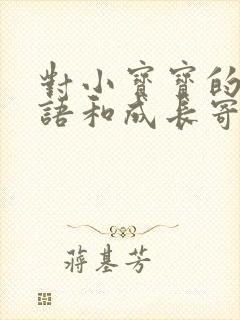 對小寶寶的
語和成長寄
蔣基芳